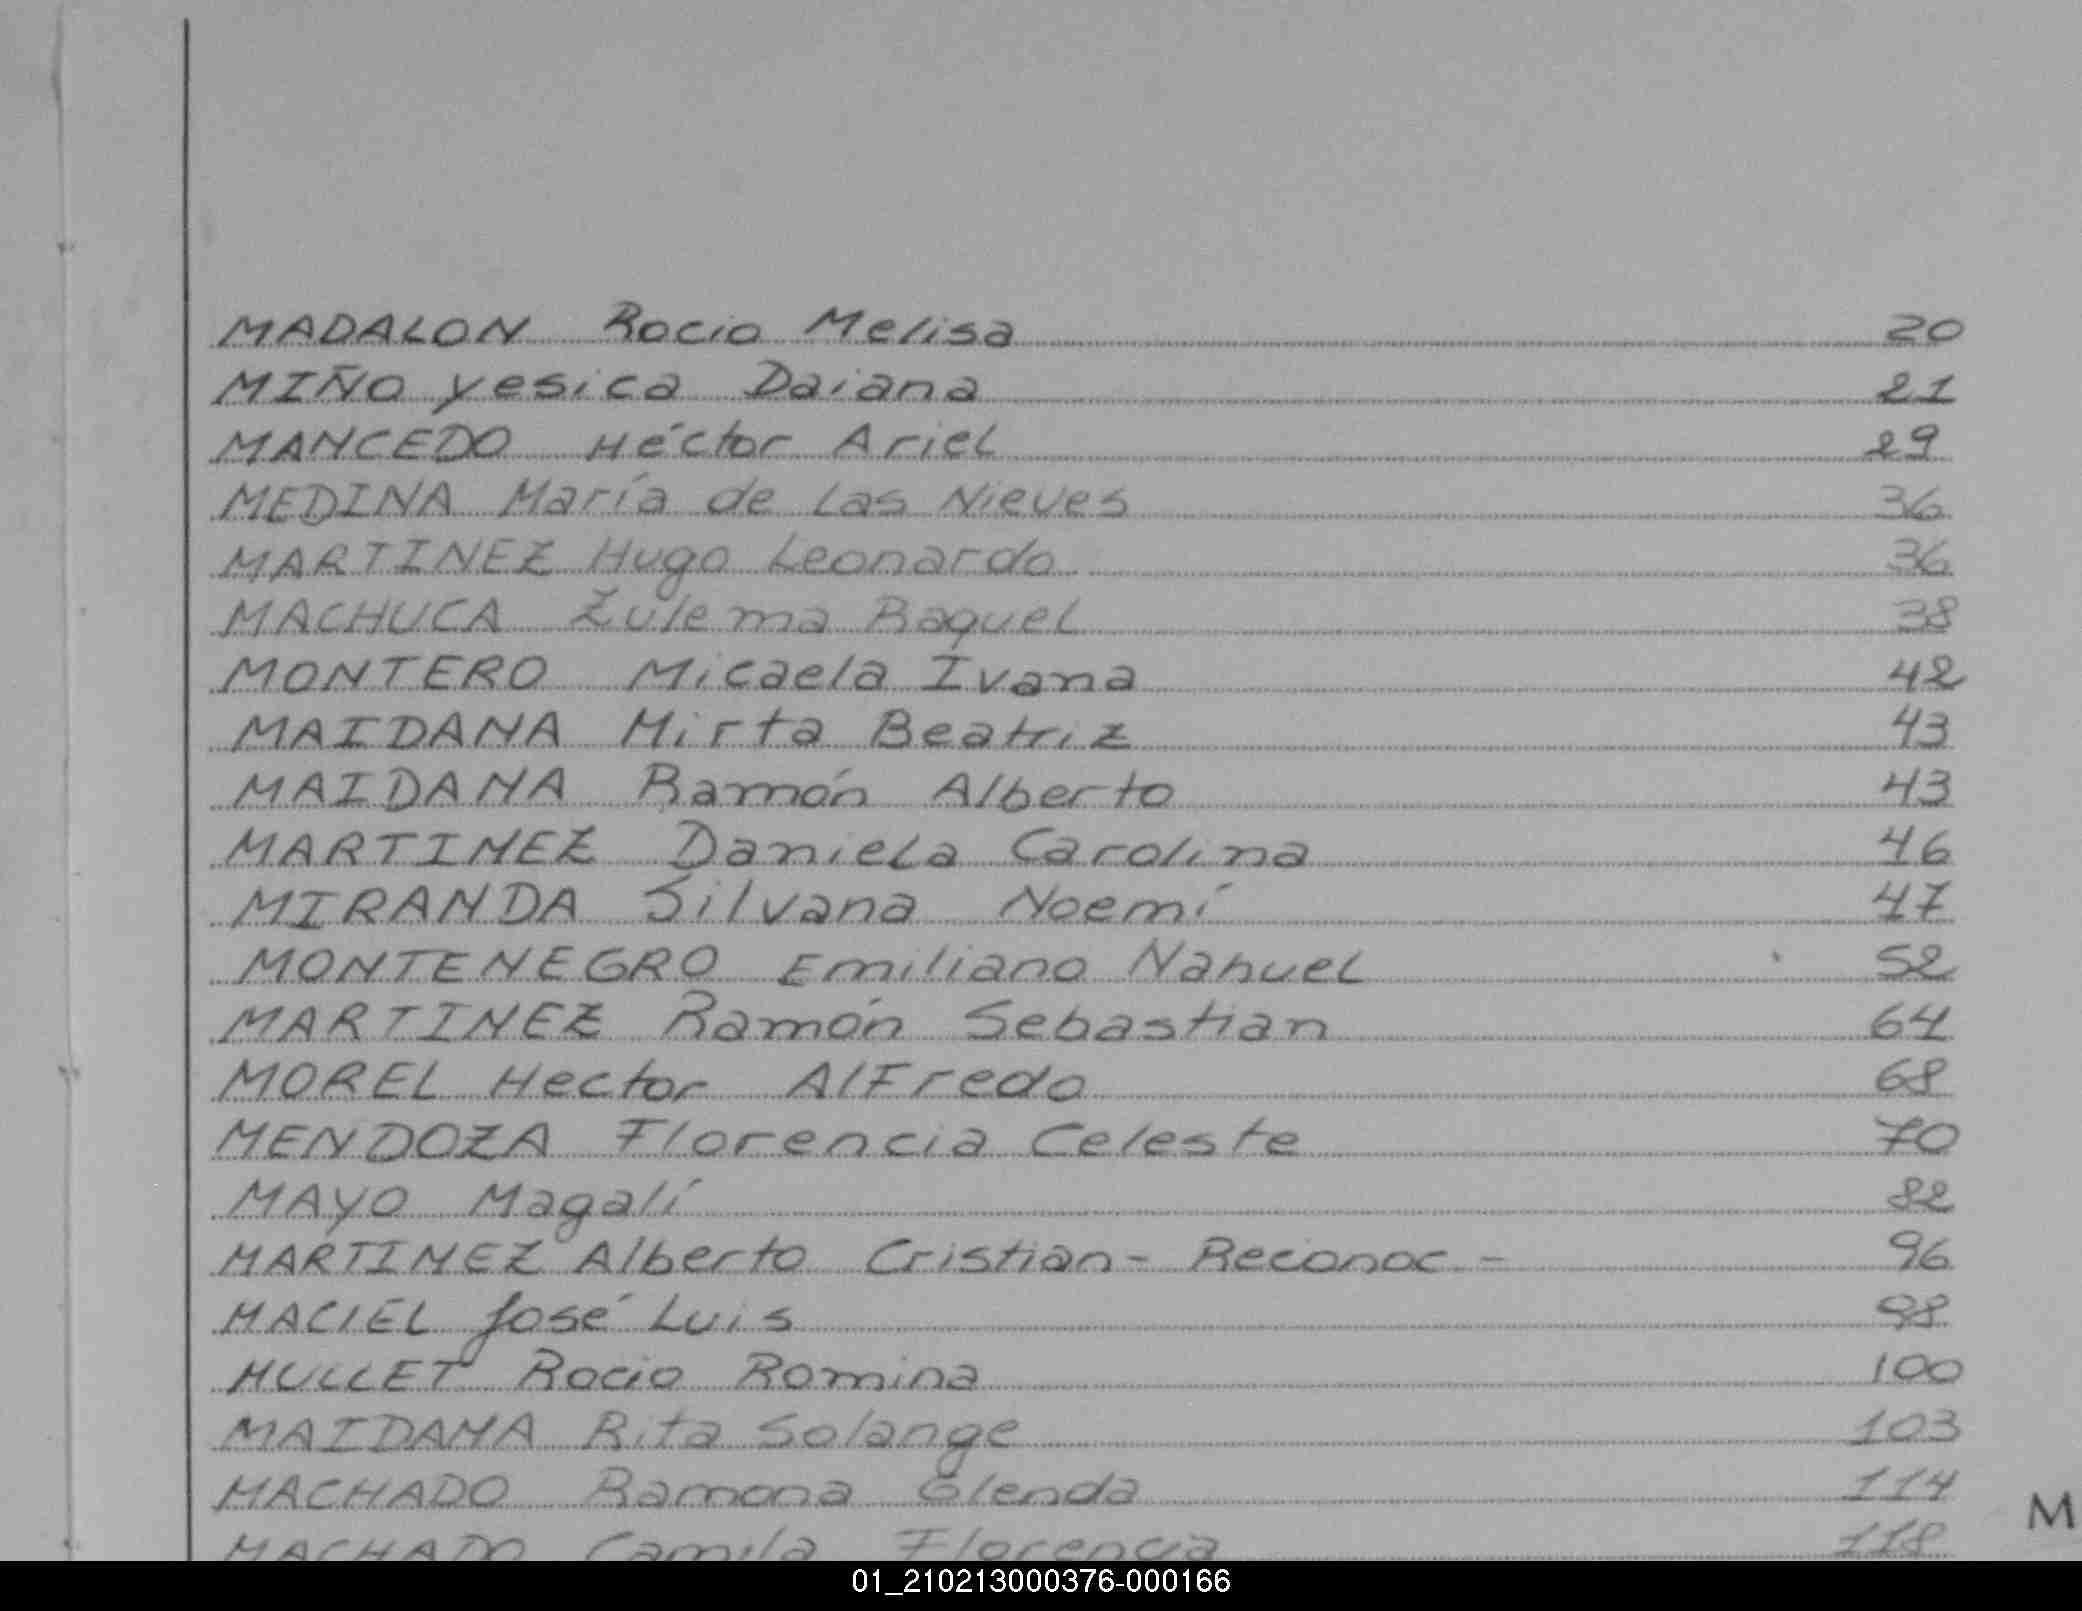 MADALON Rocio Melisa 20
MIÑO yesica Daiana 21
MANCEDO Héctor Ariel 29
MEDINA María de Las Nieves 36
MARTINEZ Hugo Leonardo 36
MACHUCA Zulema Raquel 38
MONTERO Micaela Ivana 42
MAIDANA Mirta Beatriz 43
MAIDANA Ramón Alberto 43
MARTINEZ Daniela Carolina 46
MIRANDA Silvana Noemí 47
MONTENEGRO Emiliano Nahuel 52
MARTINEZ Ramón Sebastian 64
MOREL Hector Alfredo 68
MENDOZA Florencia Celeste 70
MAYO Magalí 82
MARTINEZ Alberto Cristian - Reconoc. - 96
MACIEL José Luis 98
MULLET Rocio Romina 100
MAIDANA Rita Solange 103
MACHADO Ramona Glenda 114
M
MACHADO Camila Florencia 118
01_210213000376-000166